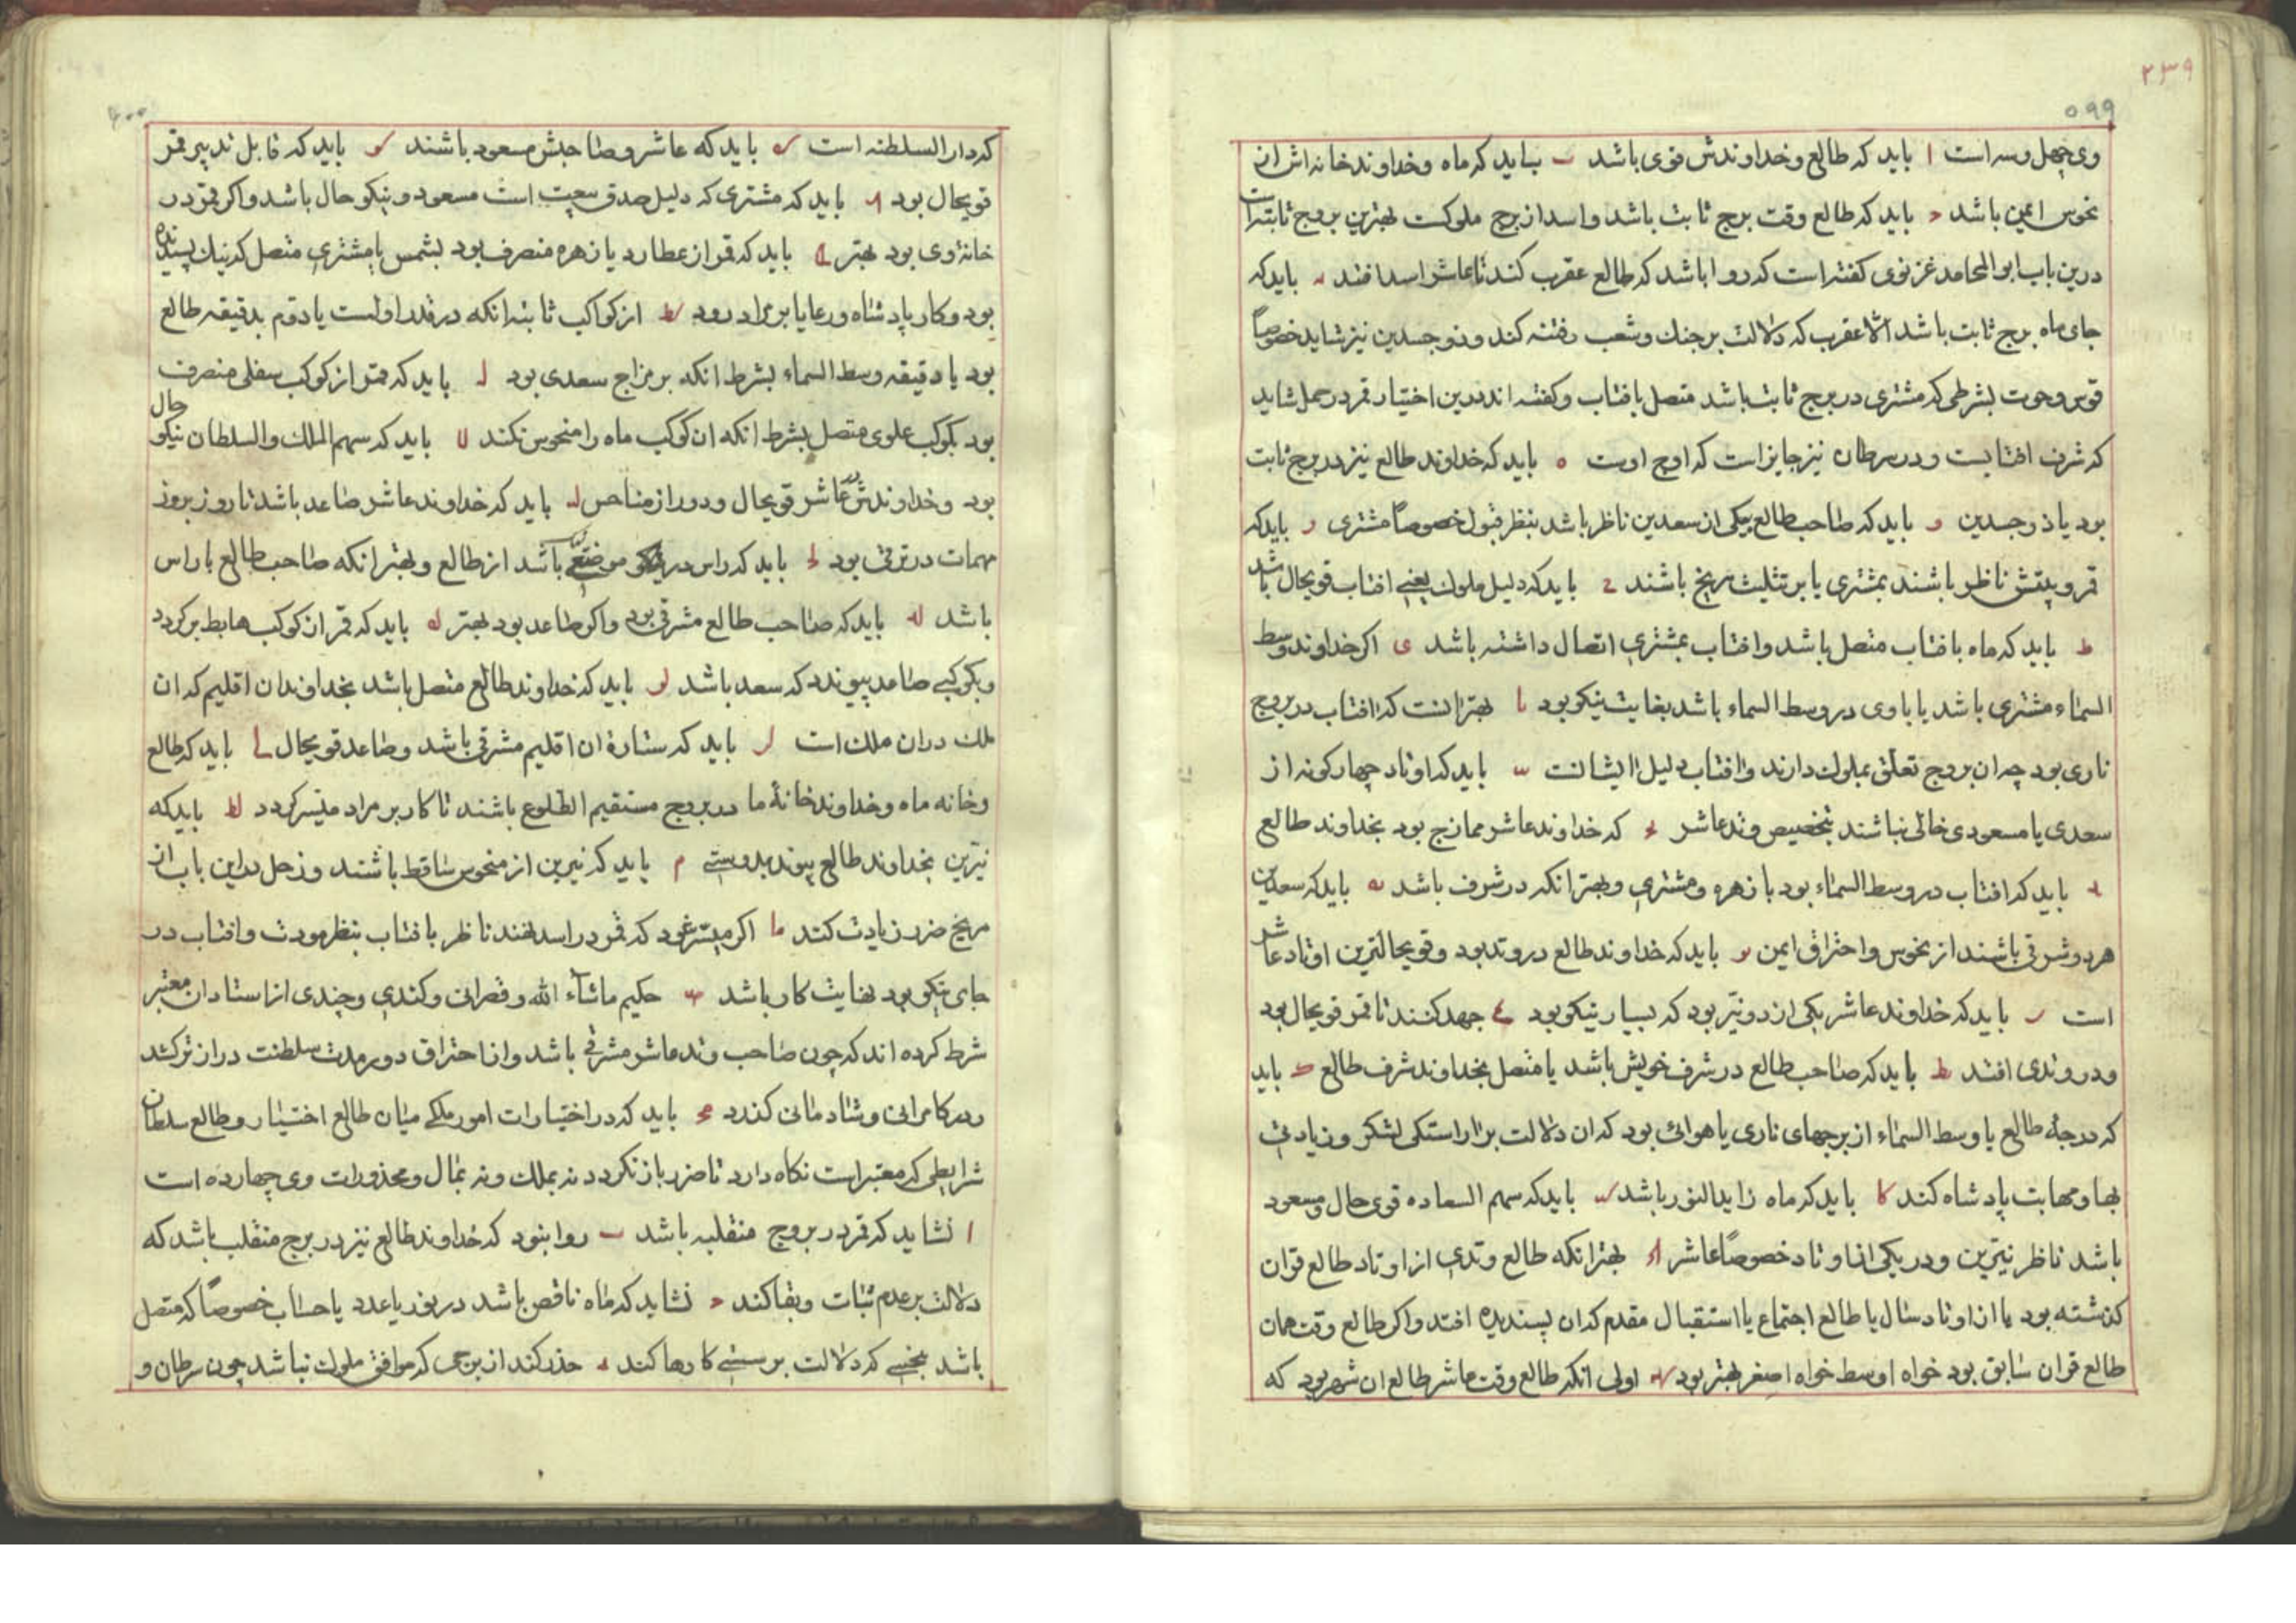 ۲۳۹
۵۹۹
وی چهل و سه است ا باید که طالع و خداوندش قوی باشد ب باید که ماه و خداوند خانه اش از
نحوس ایمن باشد ح باید که طالع وقت برج ثابت باشد و اسد از برج ملوکت بهترین بروج ثابته است
درین باب ابو المحامد غزنوی کفته است که روا باشد که طالع عقرب کند تا عاشر اسد افتد د باید که
جای ماه برج ثابت باشد الا عقرب که دلالت بر جنك و شعب و فتنه کند و ذو جسدین نیز شاید خصوصاً
قوس و حوت بشرطی که مشتری در برج ثابت باشد متصل بافتاب و کفته اند درین اختیار قمر در حمل شاید
که شرف افتابست و در سرطان نیز جایز است که اوج اوست ه باید که خداوند طالع نیز در برج ثابت
بود یا ذو جسدین و باید که صاحب طالع بیکی از سعدین ناظر باشد بنظر قبول خصوصاً مشتری ر باید که
قمر و بیتش ناظر باشند بمشتری یا بر تثلیث مریخ باشند ح باید که دلیل ملوك یعنی افتاب قویحال باشد
ط باید که ماه بافتاب متصل باشد و افتاب بمشتری اتصال داشته باشد ی اکر خداوند وسط
السماء مشتری باشد یا باوی در وسط السماء باشد بغایت نیکو بود یا بهتر انست که افتاب در بروج
ناری بود چه ان بروج تعلق بملوك دارند و افتاب دلیل ایشانست یب باید که اوتاد چهار کونه از
سعدی یا مسعودی خالی نباشند بتخصیص وتد عاشر یح که خداوند عاشر ممازج بود بخداوند طالع
ید باید که افتاب در وسط السماء بود با زهره و مشتری و بهتر انکه در شرف باشد یه باید که سعدین
هر دو شرقی باشند از نحوس و احتراق ایمن یو باید که خداوند طالع در وتد بود و قویحالترین اوتاد عاشر
است یر باید که خداوند عاشر یکی از دو نیّر بود که بسیار نیکو بود یح جهد کنند تا قمر قویحال بود
و در وتدی افتد یط باید که صاحب طالع در شرف خویش باشد یا متصل بخداوند شرف طالع ک باید
که درجهٔ طالع یا وسط السماء از برجهای ناری یا هوائی بود که ان دلالت بر اراستکی لشکر و زیادتی
بها و مهابت پادشاه کند کا باید که ماه زاید النور باشد کب باید که سهم السعاده قوی حال و مسعود
باشد ناظر نیّرین و در یکی از اوتاد خصوصاً عاشر کح بهتر انکه طالع وتدی از اوتاد طالع قران
کذشته بود یا از اوتاد سال یا طالع اجتماع یا استقبال مقدم که ان پسندیده افتد و اکر طالع وقت همان
طالع قران سابق بود خواه اوسط خواه اصغر بهتر بود کد اولی انکه طالع وقت عاشر طالع ان شهر بود که
۶۰۰
که دار السلطنه است که باید که عاشر و صاحبش مسعود باشند کو باید که قابل تدبیر قمر
قویحال بود کر باید که مشتری که دلیل صدق بیعت است مسعود و نیکو حال باشد و اکر قمر در
خانهٔ وی بود بهتر کح باید که قمر از عطارد یا زهره منصرف بود بشمس یا مشتری متصل که نیك پسندیده
بود و کار پادشاه و رعایا بر مراد رود کط از کواکب ثابته انکه در قدر اولست یا دوم بدقیقه طالع
بود یا دقیقه وسط السماء بشرط انکه بر مزاج سعدی بود ل باید که قمر از کوکب سفلی منصرف
بود بکوکب علوی متصل بشرط انکه ان کوکب ماه را منحوس نکند لا باید که سهم الملك والسلطان نیکو حال
بود و خداوندش در عاشر قویحال و دور از مناحس لب باید که خداوند عاشر صاعد باشد تا روز بروز
مهمات در ترقی بود لح باید که راس در نیکو موضعی باشد از طالع و بهتر انکه صاحب طالع با راس
باشد لد باید که صاحب طالع مشرقی بود و اکر صاعد بود بهتر له باید که قمر از کوکب هابط بر کردد
و بکوکبی صاعد پیوندد که سعد باشد لو باید که خداوند طالع متصل باشد بخداوندان اقلیم که ان
ملك در ان ملك است لر باید که ستارهٔ ان اقلیم مشرقی باشد و صاعد قویحال لح باید که طالع
و خانه ماه و خداوند خانهٔ ما در بروج مستقیم الطلوع باشند تا کار بر مراد میّسر کردد لط باید که
نیّرین بخداوند طالع پیوندند بدوستی م باید که نیرین از منحوس ساقط باشند و زحل در این باب از
مریخ ضرر زیادت کند ما اکر میسّر شود که قمر در اسد افتد ناظر بافتاب بنظر مودت و افتاب در
جای نیکو بود بغایت کار باشد مب حکیم ماشآء الله و قصرانی و کندی و چندی از استادان معتبر
شرط کرده اند که چون صاحب وتد عاشر مشرقی باشد و از احتراق دور مدت سلطنت دراز تر کشد
و در کامرانی و شادمانی کذرد مح باید که در اختیارات امور ملکی میان طالع اختیار و طالع سلطان
شرایطی که معتبر است نکاه دارد تا ضرر باز نکردد نه بملك و نه بمال و محذورات وی چهارده است
ا نشاید که قمر در بروج منقلبه باشد ب روا نبود که خداوند طالع نیز در برج منقلب باشد که
دلالت بر عدم ثبات و بقا کند ح نشاید که ماه ناقص باشد در نور یا عدد یا حساب خصوصاً که متصل
باشد بنحسی که دلالت بر سستی کارها کند د حذر کند از برجی که موافق ملوك نباشد چون سرطان و